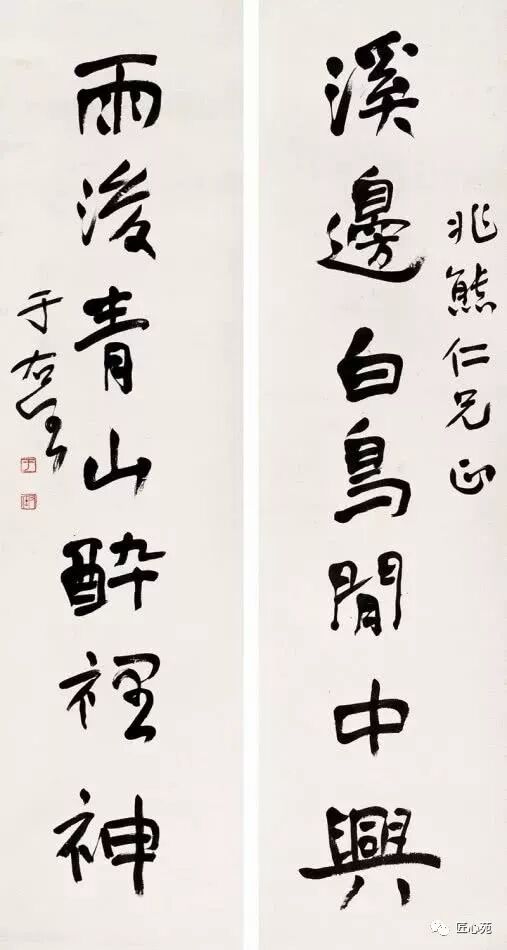 兆熊仁兄正
溪邊白鳥閒中興
雨後青山醉裡神
于右任
匠心苑